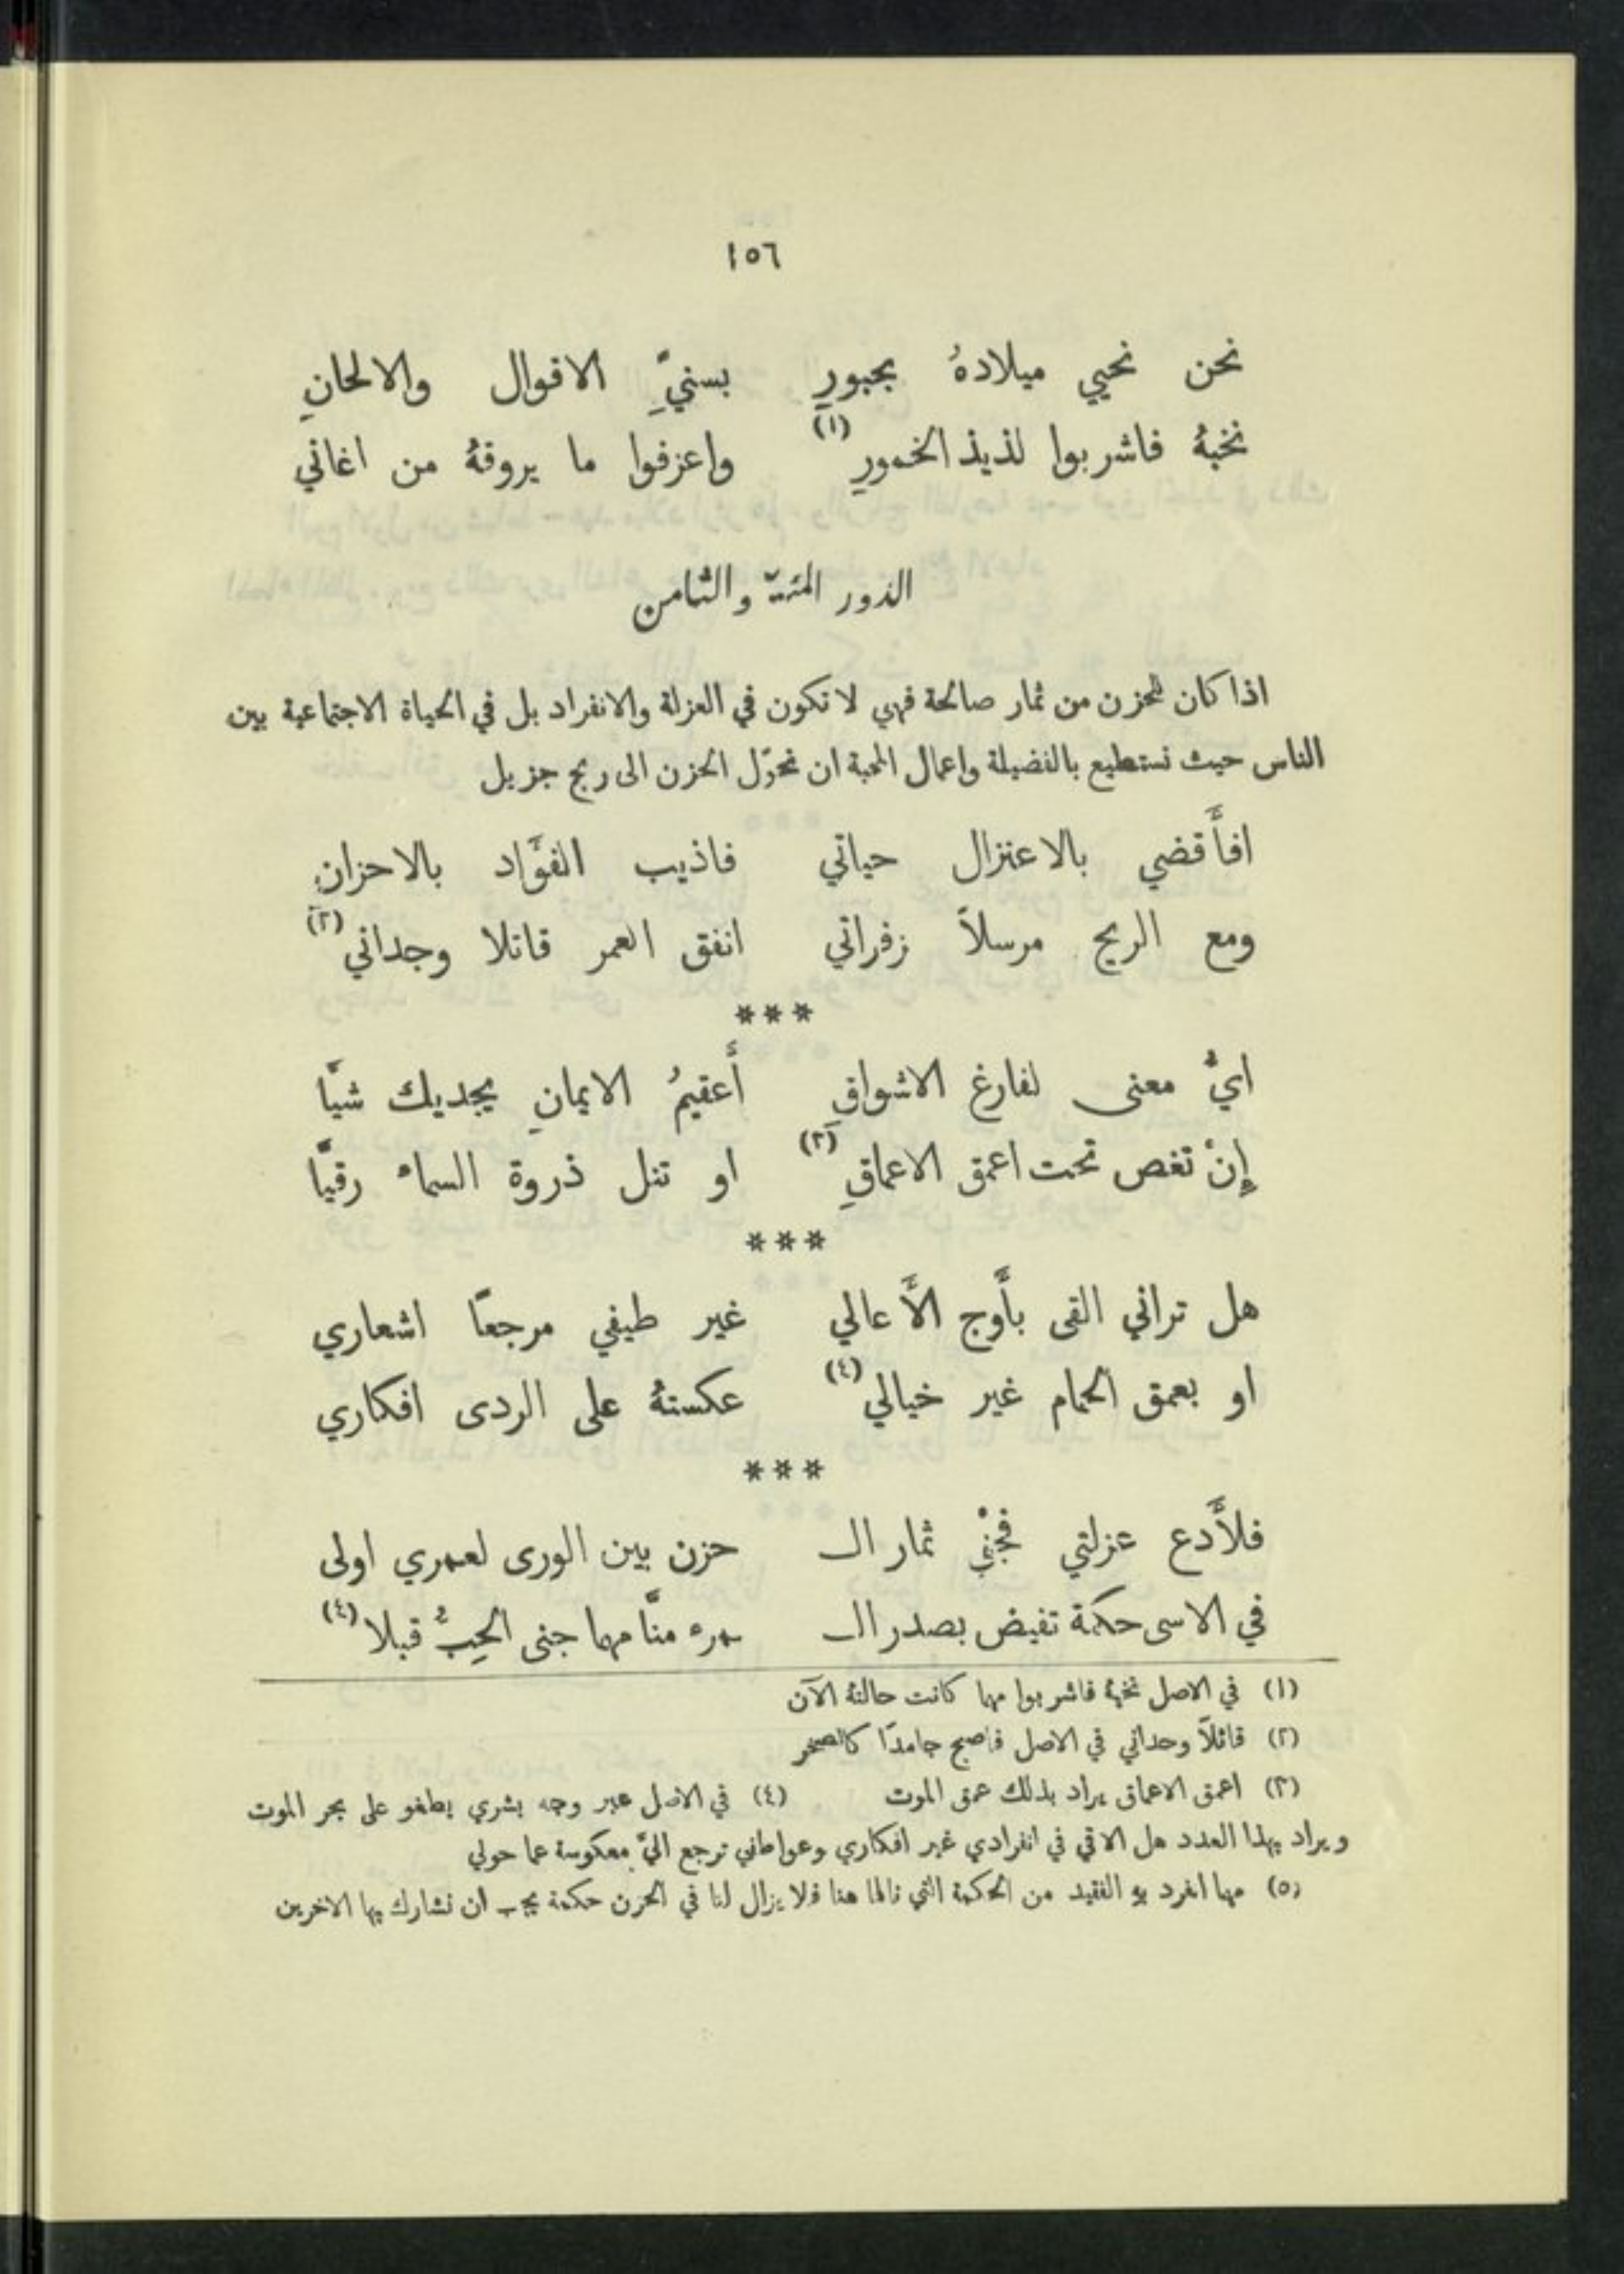 ١٥٦
نحن نحيي ميلادهُ بحبورِ بسنيِّ الاقوال والالحانِ
نخبهُ فاشربوا لذيذ الخمورِ (١) واعزفوا ما يروقهُ من اغاني
الدور المئة والثامن
اذا كان للحزن من ثمار صالحة فهي لا تكون في العزلة والانفراد بل في الحياة الاجتماعية بين
الناس حيث نستطيع بالفضيلة واعمال المحبة ان نحوّل الحزن الى ربح جزيل
افأَقضي بالاعتزال حياتي فاذيب الفؤَاد بالاحزانِ
ومع الريح مرسلاً زفراتي انفق العمر قاتلا وجداني (٢)
***
ايُّ معنى لفارغ الاشواقِ أَعقيمُ الايمانِ يجديك شيَّا
إِنْ تغص تحت اعمق الاعماقِ (٣) او تنل ذروة السماء رقيَّا
***
هل تراني القى بأَوج الأَعالي غير طيفي مرجعًا اشعاري
او بعمق الحمام غير خيالي (٤) عكستهُ على الردى افكاري
***
فلأَدع عزلتي فجنْيُ ثمار الـ حزن بين الورى لعمري اولى
في الاسى حكمة تفيض بصدر الـ ـمرء منَّا مهما جنى الحِبُّ قبلا (٤)
(١) في الاصل نخبهُ فاشربوا مهما كانت حالتهُ الآن
(٢) قاتلاً وجداني في الاصل فاصبح جامدًا كالصخر
(٣) اعمق الاعماق يراد بذلك عمق الموت (٤) في الاصل غير وجه بشري يطفو على بحر الموت
ويراد بهذا العدد هل الاقي في انفرادي غير افكاري وعواطفي ترجع اليَّ معكوسة عما حولي
(٥) مهما انفرد به الفقيد من الحكمة التي نالها هنا فلا يزال لنا في الحزن حكمة يجب ان نشارك بها الاخرين